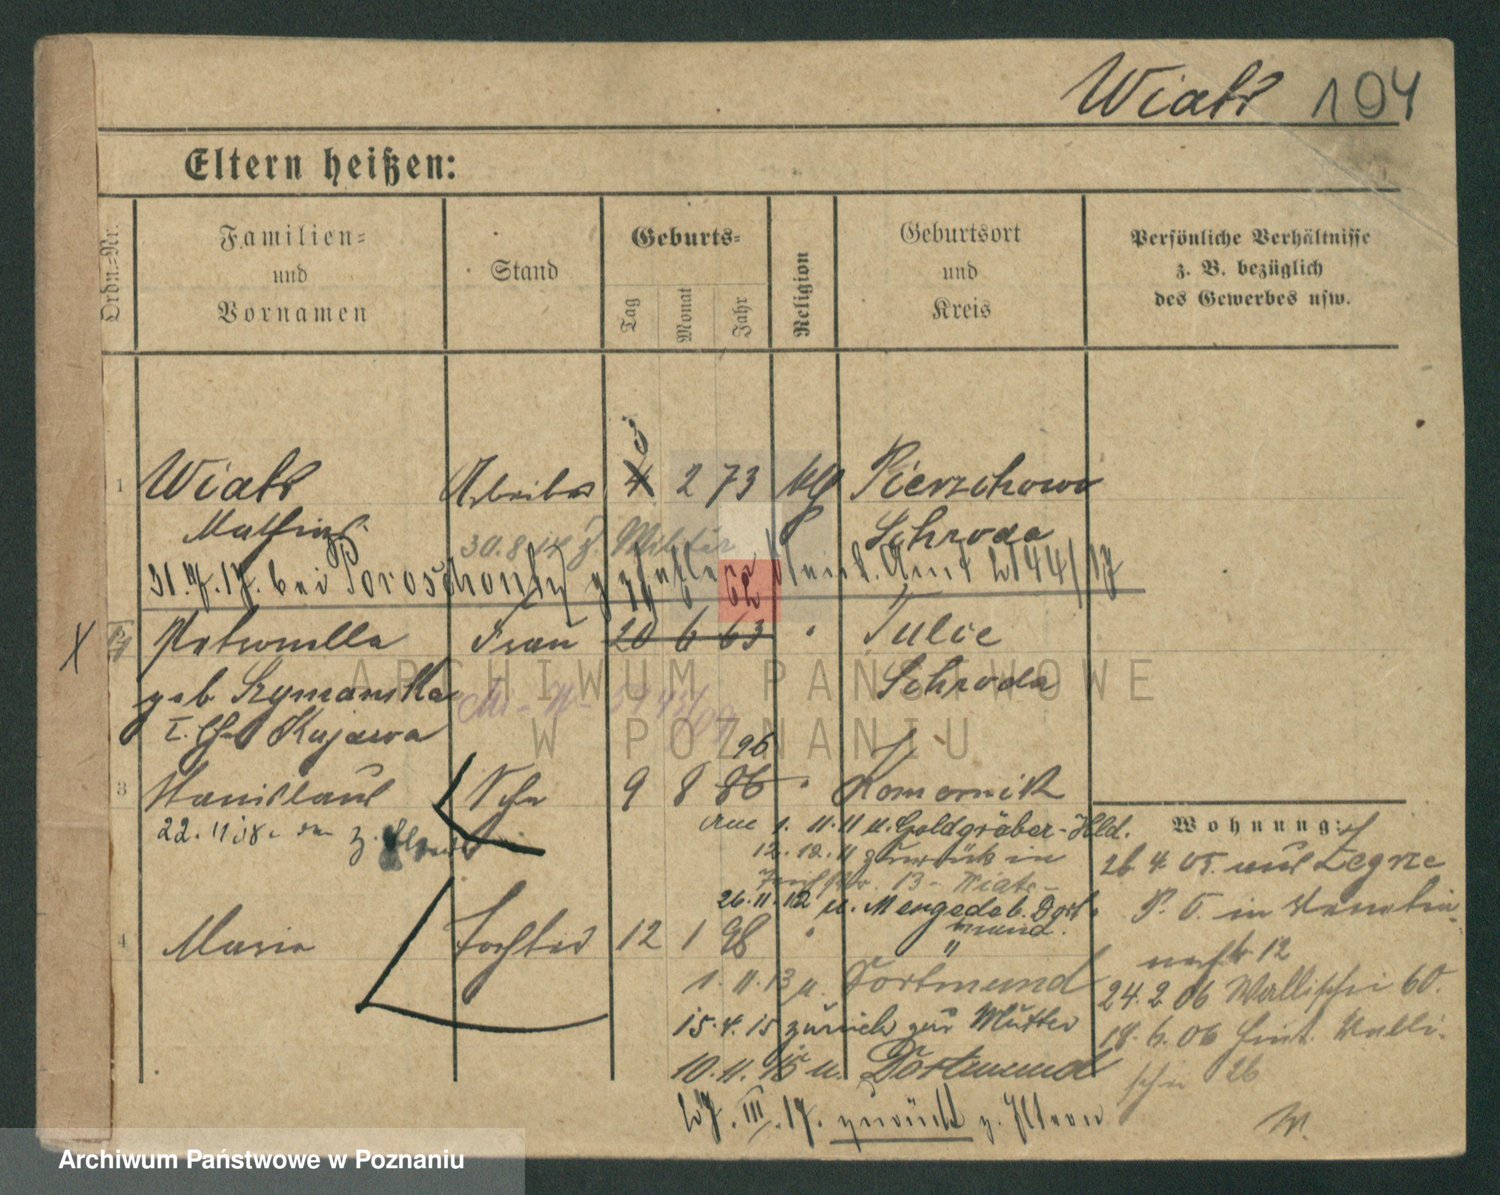 Wiatr 194
Eltern heißen:
Ordn.=Nr.
Familien=
und
Vornamen
Stand
Geburts=
Tag
Monat
Jahr
Religion
Geburtsort
und
Kreis
Persönliche Verhältnisse
z. B. bezüglich
des Gewerbes usw.
1 Wiatr 4 2 73 Pierzchowo
Mathias Schroda
30.8.14 z. Militär
31.7.17. bei 2144/17
62
X Petronella Frau 20 6 63 " Tulce
geb Szymanska Schroda
I. Kujawa
96
3 Stanislaus Sohn 9 8 86 " Komornik
22. 11 18. z.
1. 11. 11 u. Goldgräber-Hld.
12. 12. 11 zurück in
13 - Wiatr -
26. 11. 12 u. Mengede b. Dort-
mund.
4 Maria Tochter 12 1 98 " "
1. 11. 13 u. Dortmund
15. 4. 15 zurück zur Mutter
10. 11. 15 u. Dortmund
27. III. 17. zurück z. Eltern
Wohnung:
26. 4. 05. aus Zegrze
P. O. in
12
24. 2. 06 Wallischei 60.
18. 6. 06 Hint. Walli-
schei 26
W.
ARCHIWUM PAŃSTWOWE
W POZNANIU
Archiwum Państwowe w Poznaniu